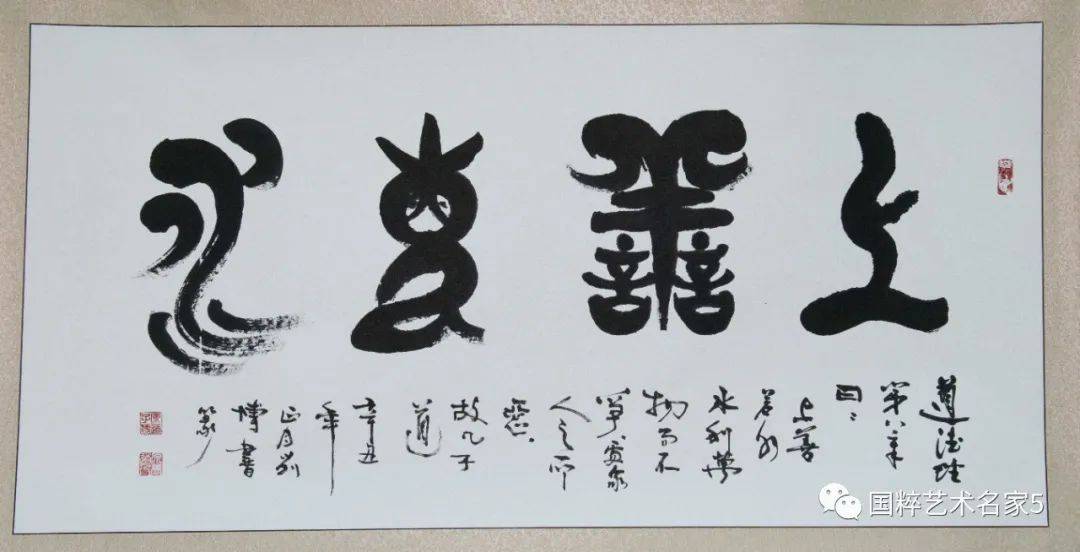 上善若水
道德经
第八章
曰：
上善
若水
水利萬
物而不
爭處眾
人之所
惡
故几于
道
辛丑
年
正月
博書
篆
国粹艺术名家5